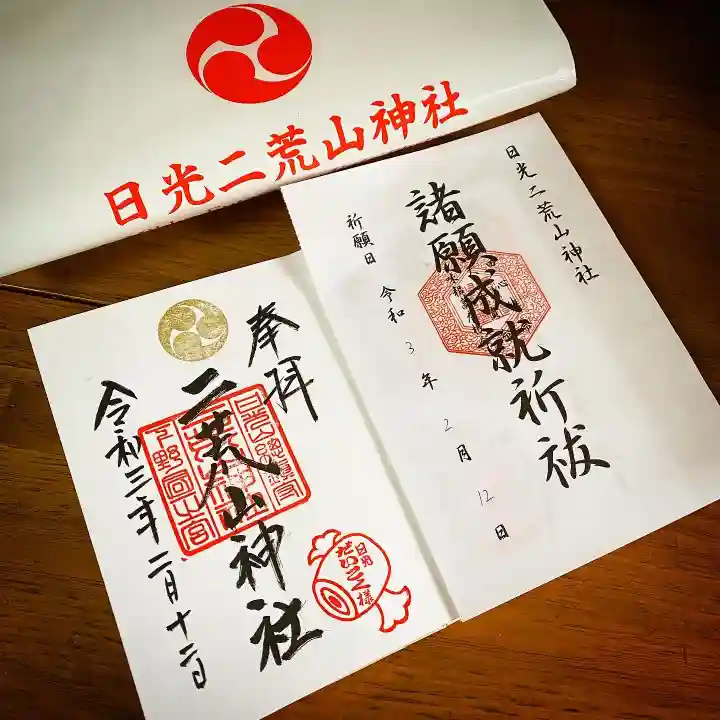 日光二荒山神社
日光二荒山神社
諸願成就祈祓
祈願日 令和3年2月12日
奉拝
二荒山神社
令和三年二月十二日
日光
だいこく様